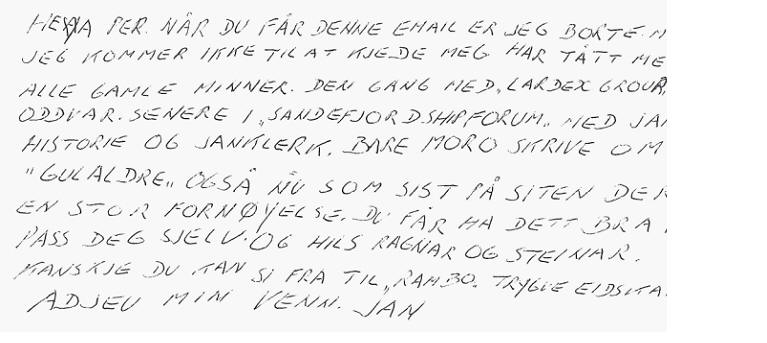 HEIA PER. NÅR DU FÅR DENNE EMAIL ER JEG BORTE.
JEG KOMMER IKKE TIL AT KJEDE MEG HAR TÅTT ME
ALLE GAMLE MINNER. DEN GANG MED "LARDEX GROUP,
ODDVAR. SENERE I "SANDEFJORD SHIPFORUM" MED JAN
HISTORIE OG JANKLERK. BARE MORO SKRIVE OM
"GULALDRE" OGSÅ NÅ SOM SIST PÅ SITEN DER
EN STOR FORNØYELSE. DU FÅR HA DETT BRA
PASS DEG SJELV. OG HILS RAGNAR OG STEINAR.
KANSKJE DU KAN SI FRA TIL "RAMBO. TRYGVE
ADJEU MIN VENN. JAN